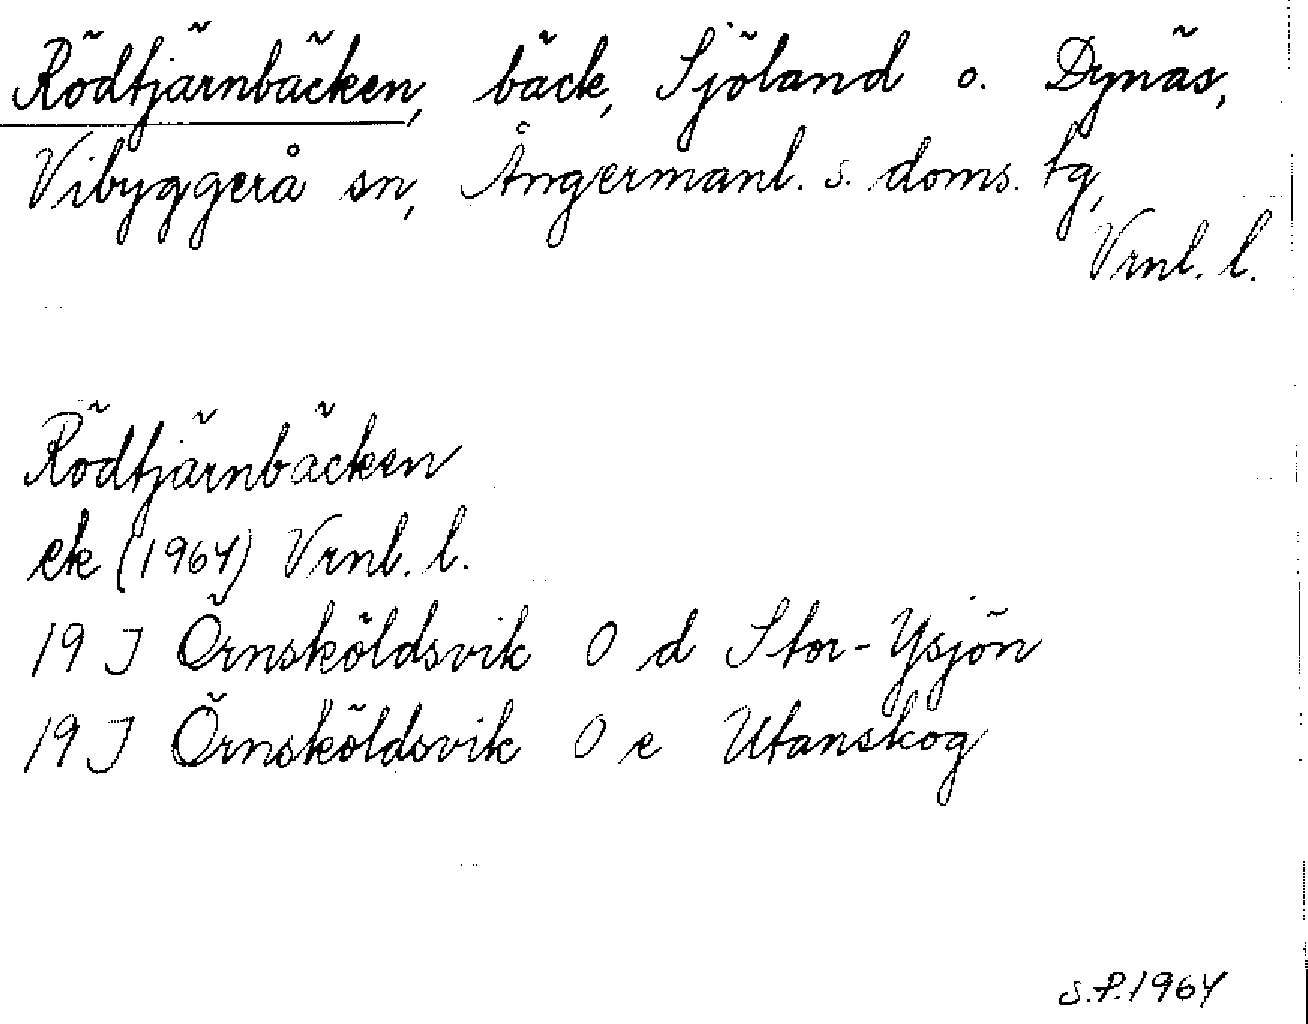 Rödtjärnbäcken, bäck, Sjöland o. Dynäs,
Vibyggerå sn, Ångermanl. s. doms. tg,
Vrnl. l.
Rödtjärnbäcken
ek (1964) Vrnl. l.
19 J Örnsköldsvik O d Stor-Ysjön
19 J Örnsköldsvik O e Utanskog
S.P. 1964